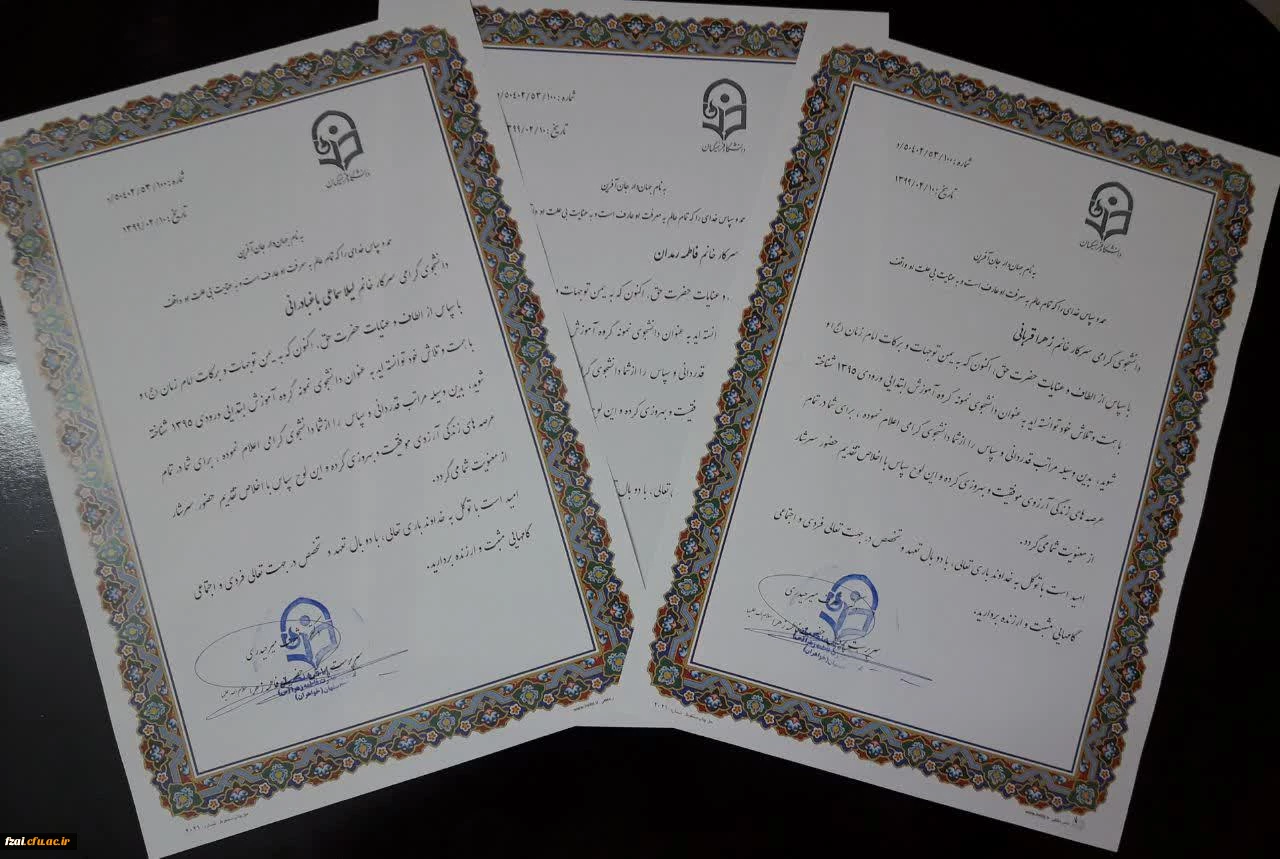 دانشگاه فرهنگیان
شماره: ۵۰۴۰۲/۵۳/۱۰۰/د
تاریخ: ۱۳۹۹/۰۲/۱۰
به نام جهان دار جان آفرین
حمد و سپاس خدای را که تمام عالم به معرفت او عارف است و به عنایت بی علت او واقف
دانشجوی گرامی سرکار خانم زهرا قربانی
با سپاس از الطاف و عنایات حضرت حق، اکنون که به یمن توجهات و برکات امام زمان (عج) و
با همت و تلاش خود توانسته اید به عنوان دانشجوی نمونه گروه آموزش ابتدایی ورودی ۱۳۹۵ شناخته
شوید، بدین وسیله مراتب قدردانی و سپاس را از شما دانشجوی گرامی اعلام نموده، برای شما در تمام
عرصه های زندگی آرزوی موفقیت و بهروزی کرده و این لوح سپاس با اخلاص تقدیم حضور سرشار
از معنویت شما می گردد.
امید است با توکل به خداوند باری تعالی، با دو بال تعهد و تخصص در جهت تعالی فردی و اجتماعی
گامهایی مثبت و ارزنده بردارید.
میرحیدری
دانشگاه فرهنگیان
شماره: ۵۰۴۰۲/۵۳/۱۰۰/
تاریخ: ۱۳۹۹/۰۲/۱۰
به نام جهان دار جان آفرین
حمد و سپاس خدای را که تمام عالم به معرفت او عارف است و به عنایت بی علت او
سرکار خانم فاطمه رمدان
و عنایات حضرت حق، اکنون که به یمن توجهات
انسته اید به عنوان دانشجوی نمونه گروه آموزش
قدردانی و سپاس را از شما دانشجوی
فقیت و بهروزی کرده و این لوح
تعالی، با دو بال
دانشگاه فرهنگیان
شماره: ۵۰۴۰۲/۵۳/۱۰۰/د
تاریخ: ۱۳۹۹/۰۲/۱۰
به نام جهان دار جان آفرین
حمد و سپاس خدای را که تمام عالم به معرفت او عارف است و به عنایت بی علت او واقف
دانشجوی گرامی سرکار خانم لیلا سماعی باغبادرانی
با سپاس از الطاف و عنایات حضرت حق، اکنون که به یمن توجهات و برکات امام زمان (عج) و
با همت و تلاش خود توانسته اید به عنوان دانشجوی نمونه گروه آموزش ابتدایی ورودی ۱۳۹۵ شناخته
شوید، بدین وسیله مراتب قدردانی و سپاس را از شما دانشجوی گرامی اعلام نموده، برای شما در تمام
عرصه های زندگی آرزوی موفقیت و بهروزی کرده و این لوح سپاس با اخلاص تقدیم حضور سرشار
از معنویت شما می گردد.
امید است با توکل به خداوند باری تعالی، با دو بال تعهد و تخصص در جهت تعالی فردی و اجتماعی
گامهایی مثبت و ارزنده بردارید.
میرحیدری
fzai.cfu.ac.ir